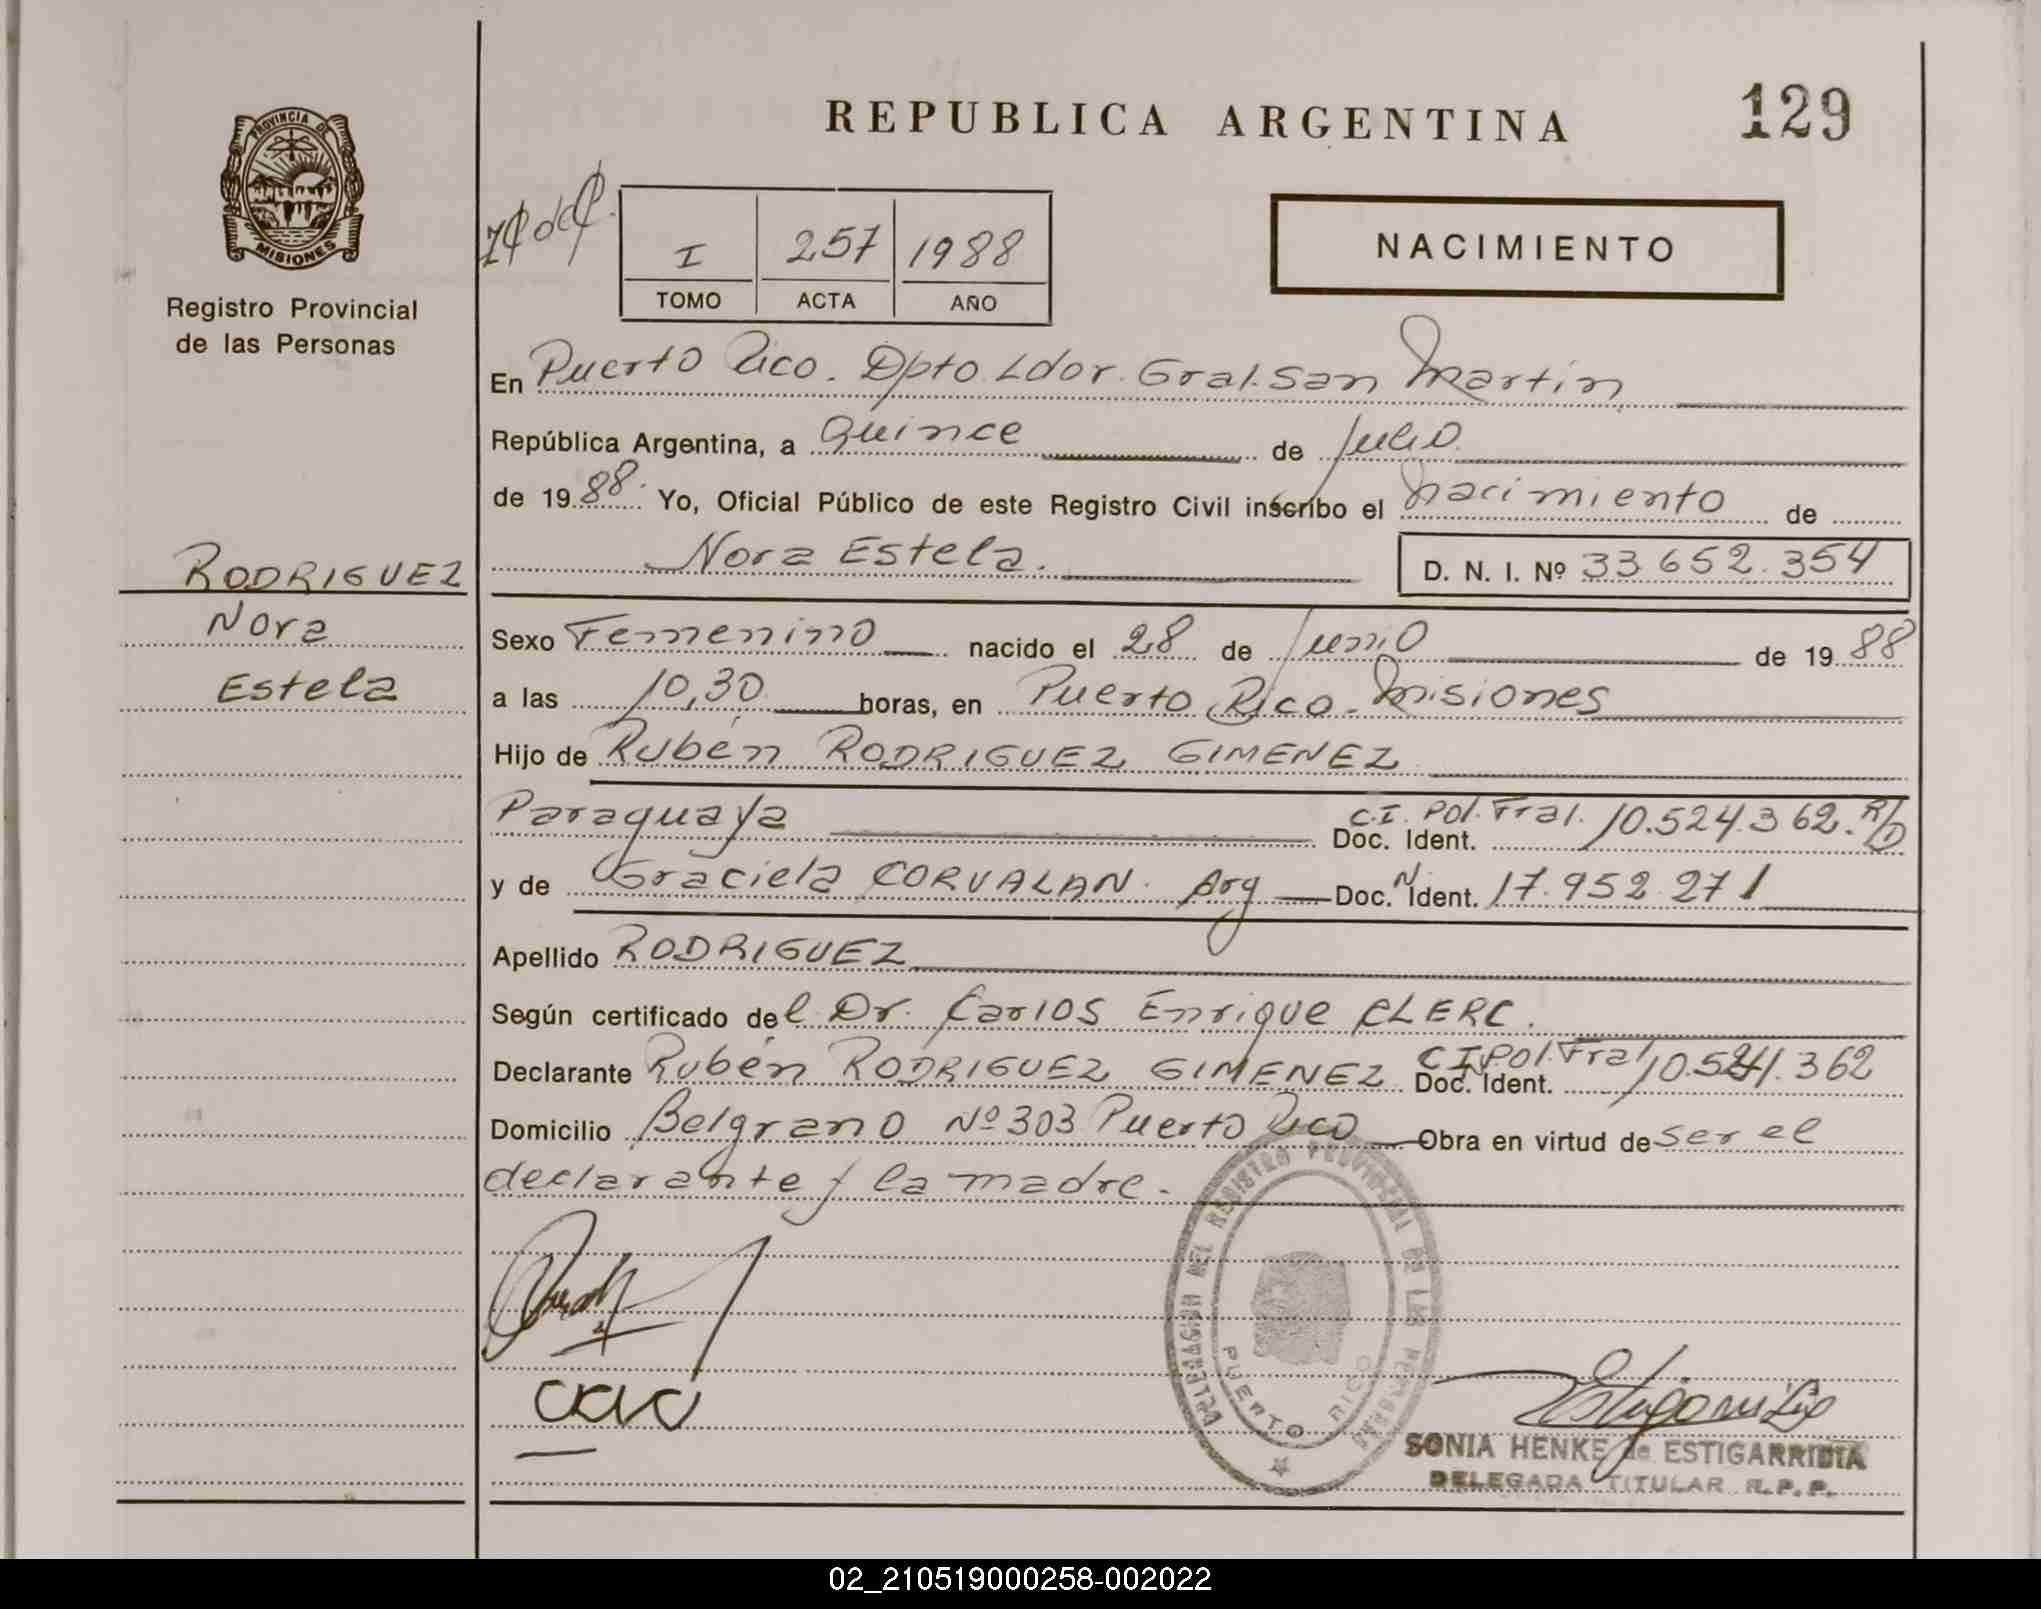 REPUBLICA ARGENTINA
129
PROVINCIA DE
MISIONES
Registro Provincial
de las Personas
I 257 1988
TOMO ACTA AÑO
NACIMIENTO
En Puerto Rico. Dpto Ldor. Gral. San Martín
República Argentina, a Quince de Julio
de 1988. Yo, Oficial Público de este Registro Civil inscribo el nacimiento de
Nora Estela. D. N. I. Nº 33.652.354
RODRIGUEZ
Nora
Estela
Sexo Femenino nacido el 28 de Junio de 1988
a las 10,30 horas, en Puerto Rico - Misiones
Hijo de Rubén RODRIGUEZ GIMENEZ
Paraguaya C.I. Pol. Fral. Doc. Ident. 10.524.362.
y de Graciela CORVALAN. Arg Doc. N Ident. 17.952.271
Apellido RODRIGUEZ
Según certificado del Dr. Carlos Enrique CLERC.
Declarante Rubén RODRIGUEZ GIMENEZ C.I. Pol. Fral Doc. Ident. 10.524.362
Domicilio Belgrano Nº 303 Puerto Rico Obra en virtud de ser el
declarante y la madre.
DELEGACION DEL REGISTRO PROVINCIAL DE LAS PERSONAS
PUERTO RICO
SONIA HENKE de ESTIGARRIBIA
DELEGADA TITULAR R.P.P.
02_210519000258-002022